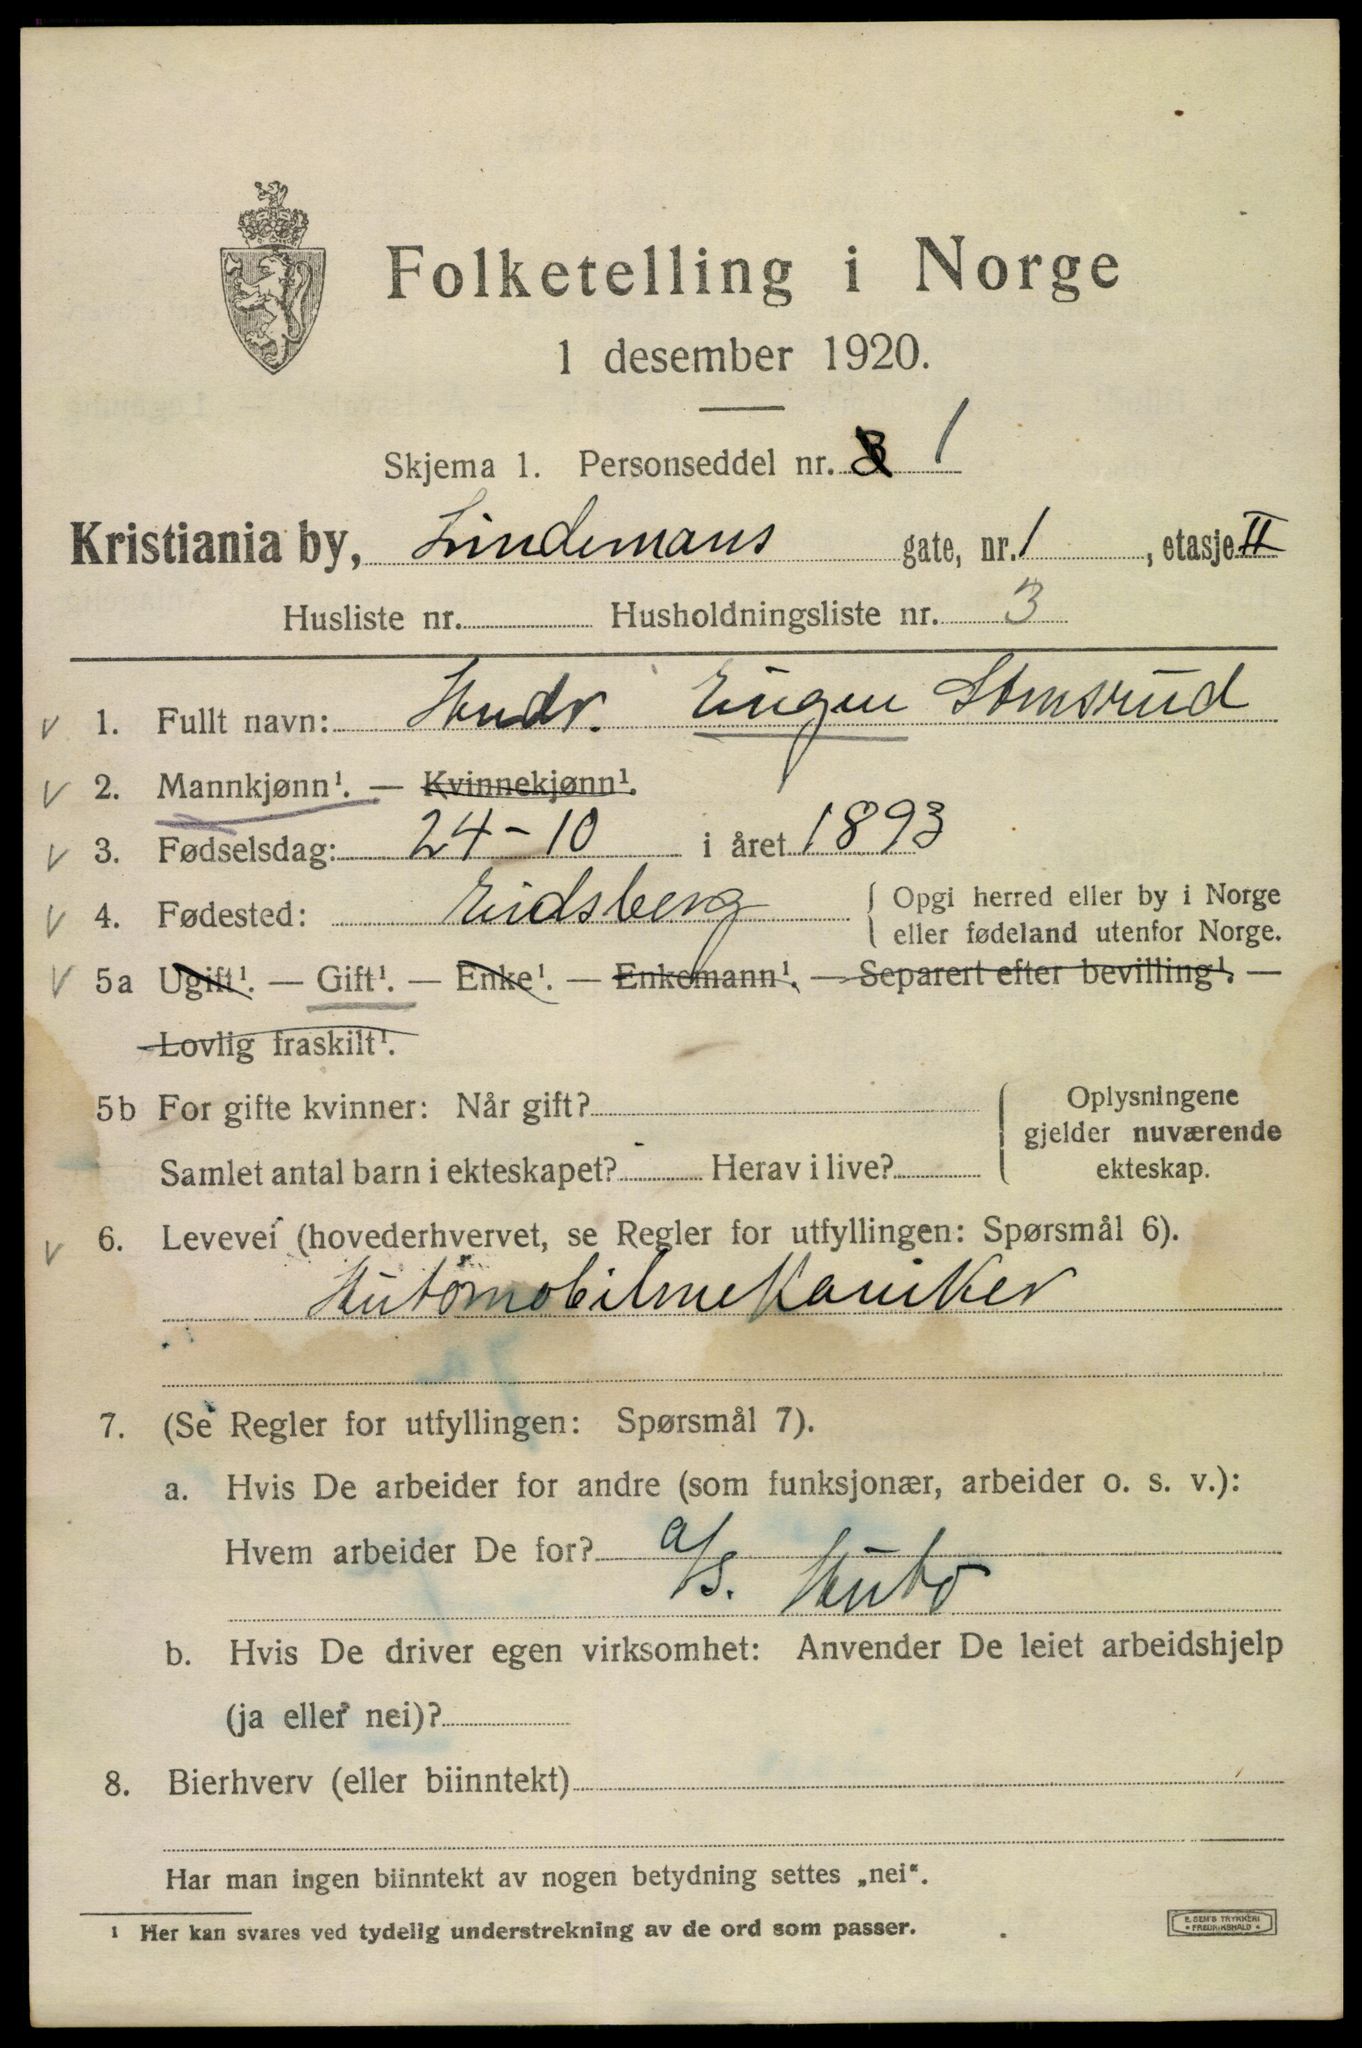 Folketelling i Norge
1 desember 1920.
Skjema 1. Personseddel nr. 1
Kristiania by, Lindemans gate, nr. 1, etasje II
Husliste nr. Husholdningsliste nr. 3
1. Fullt navn: Andr. Eugen Slomsrud
2. Mannkjønn¹. — Kvinnekjønn¹.
3. Fødselsdag: 24-10 i året 1893
4. Fødested: Eidsberg { Opgi herred eller by i Norge
eller fødeland utenfor Norge.
5a Ugift¹. — Gift¹. — Enke¹. — Enkemann¹. — Separert efter bevilling¹. —
Lovlig fraskilt¹.
5b For gifte kvinner: Når gift? { Oplysningene
gjelder nuværende
Samlet antal barn i ekteskapet? Herav i live? ekteskap.
6. Levevei (hovederhvervet, se Regler for utfyllingen: Spørsmål 6).
Automobilmekaniker
7. (Se Regler for utfyllingen: Spørsmål 7).
a. Hvis De arbeider for andre (som funksjonær, arbeider o. s. v.):
Hvem arbeider De for? a/s. Auto
b. Hvis De driver egen virksomhet: Anvender De leiet arbeidshjelp
(ja eller nei)?
8. Bierhverv (eller biinntekt)
Har man ingen biinntekt av nogen betydning settes „nei".
¹ Her kan svares ved tydelig understrekning av de ord som passer.
E. SEM'S TRYKKERI
* FREDRIKSHALD *